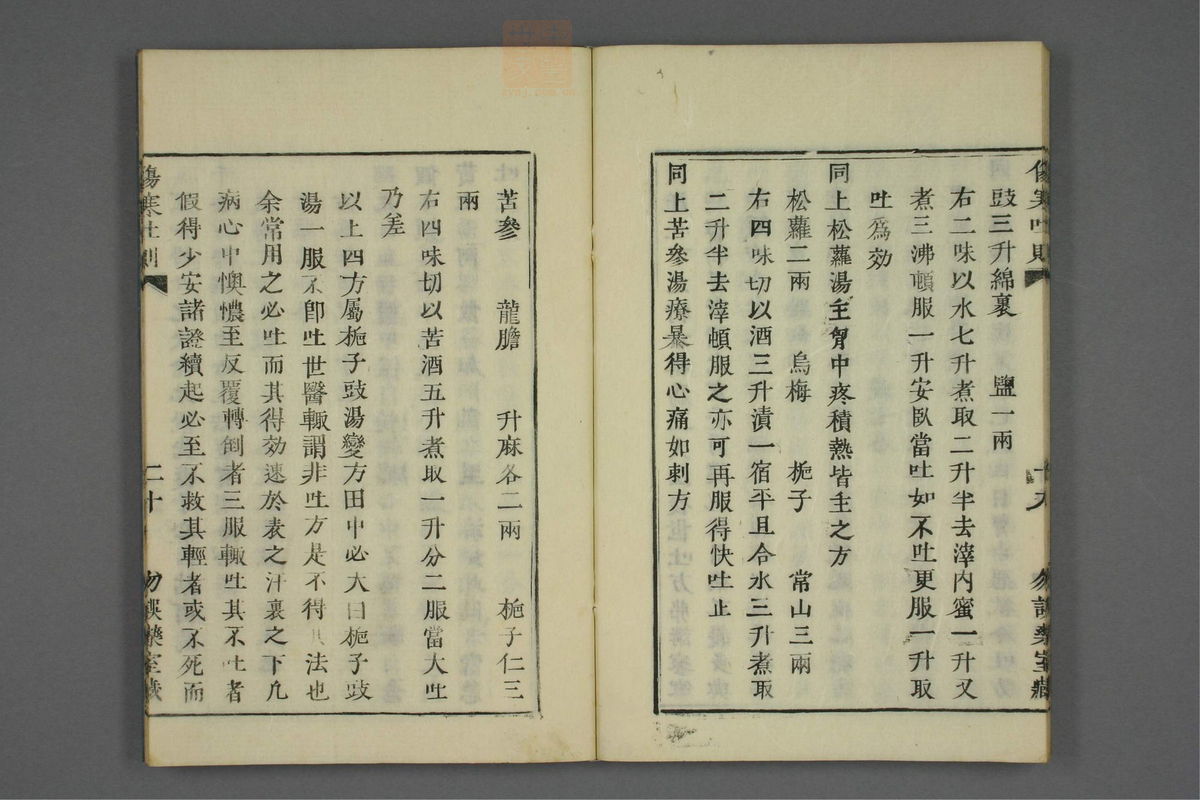 傷寒吐則 十九 勿誤藥室藏
豉三升綿裹 鹽一兩
右二味以水七升煮取二升半去滓内蜜一升又
煮三沸頓服一升安臥當吐如不吐更服一升取
吐爲効
同上松蘿湯主胷中疼積熱皆主之方
松蘿二兩 烏梅 梔子 常山三兩
右四味切以酒三升漬一宿平旦合水三升煮取
二升半去滓頓服之亦可再服得快吐止
同上苦參湯療暴得心痛如刺方
苦參 龍膽 升麻各二兩 梔子仁三
兩
右四味切以苦酒五升煮取一升分二服當大吐
乃差
以上四方屬梔子豉湯變方田中必大曰梔子豉
湯一服不卽吐世醫輙謂非吐方是不得其法也
余常用之必吐而其得効速於表之汗裏之下凡
病心中懊憹至反覆轉倒者三服輙吐其不吐者
假得少安諸證續起必至不救其輕者或不死而
傷寒吐則 二十 勿誤藥室藏